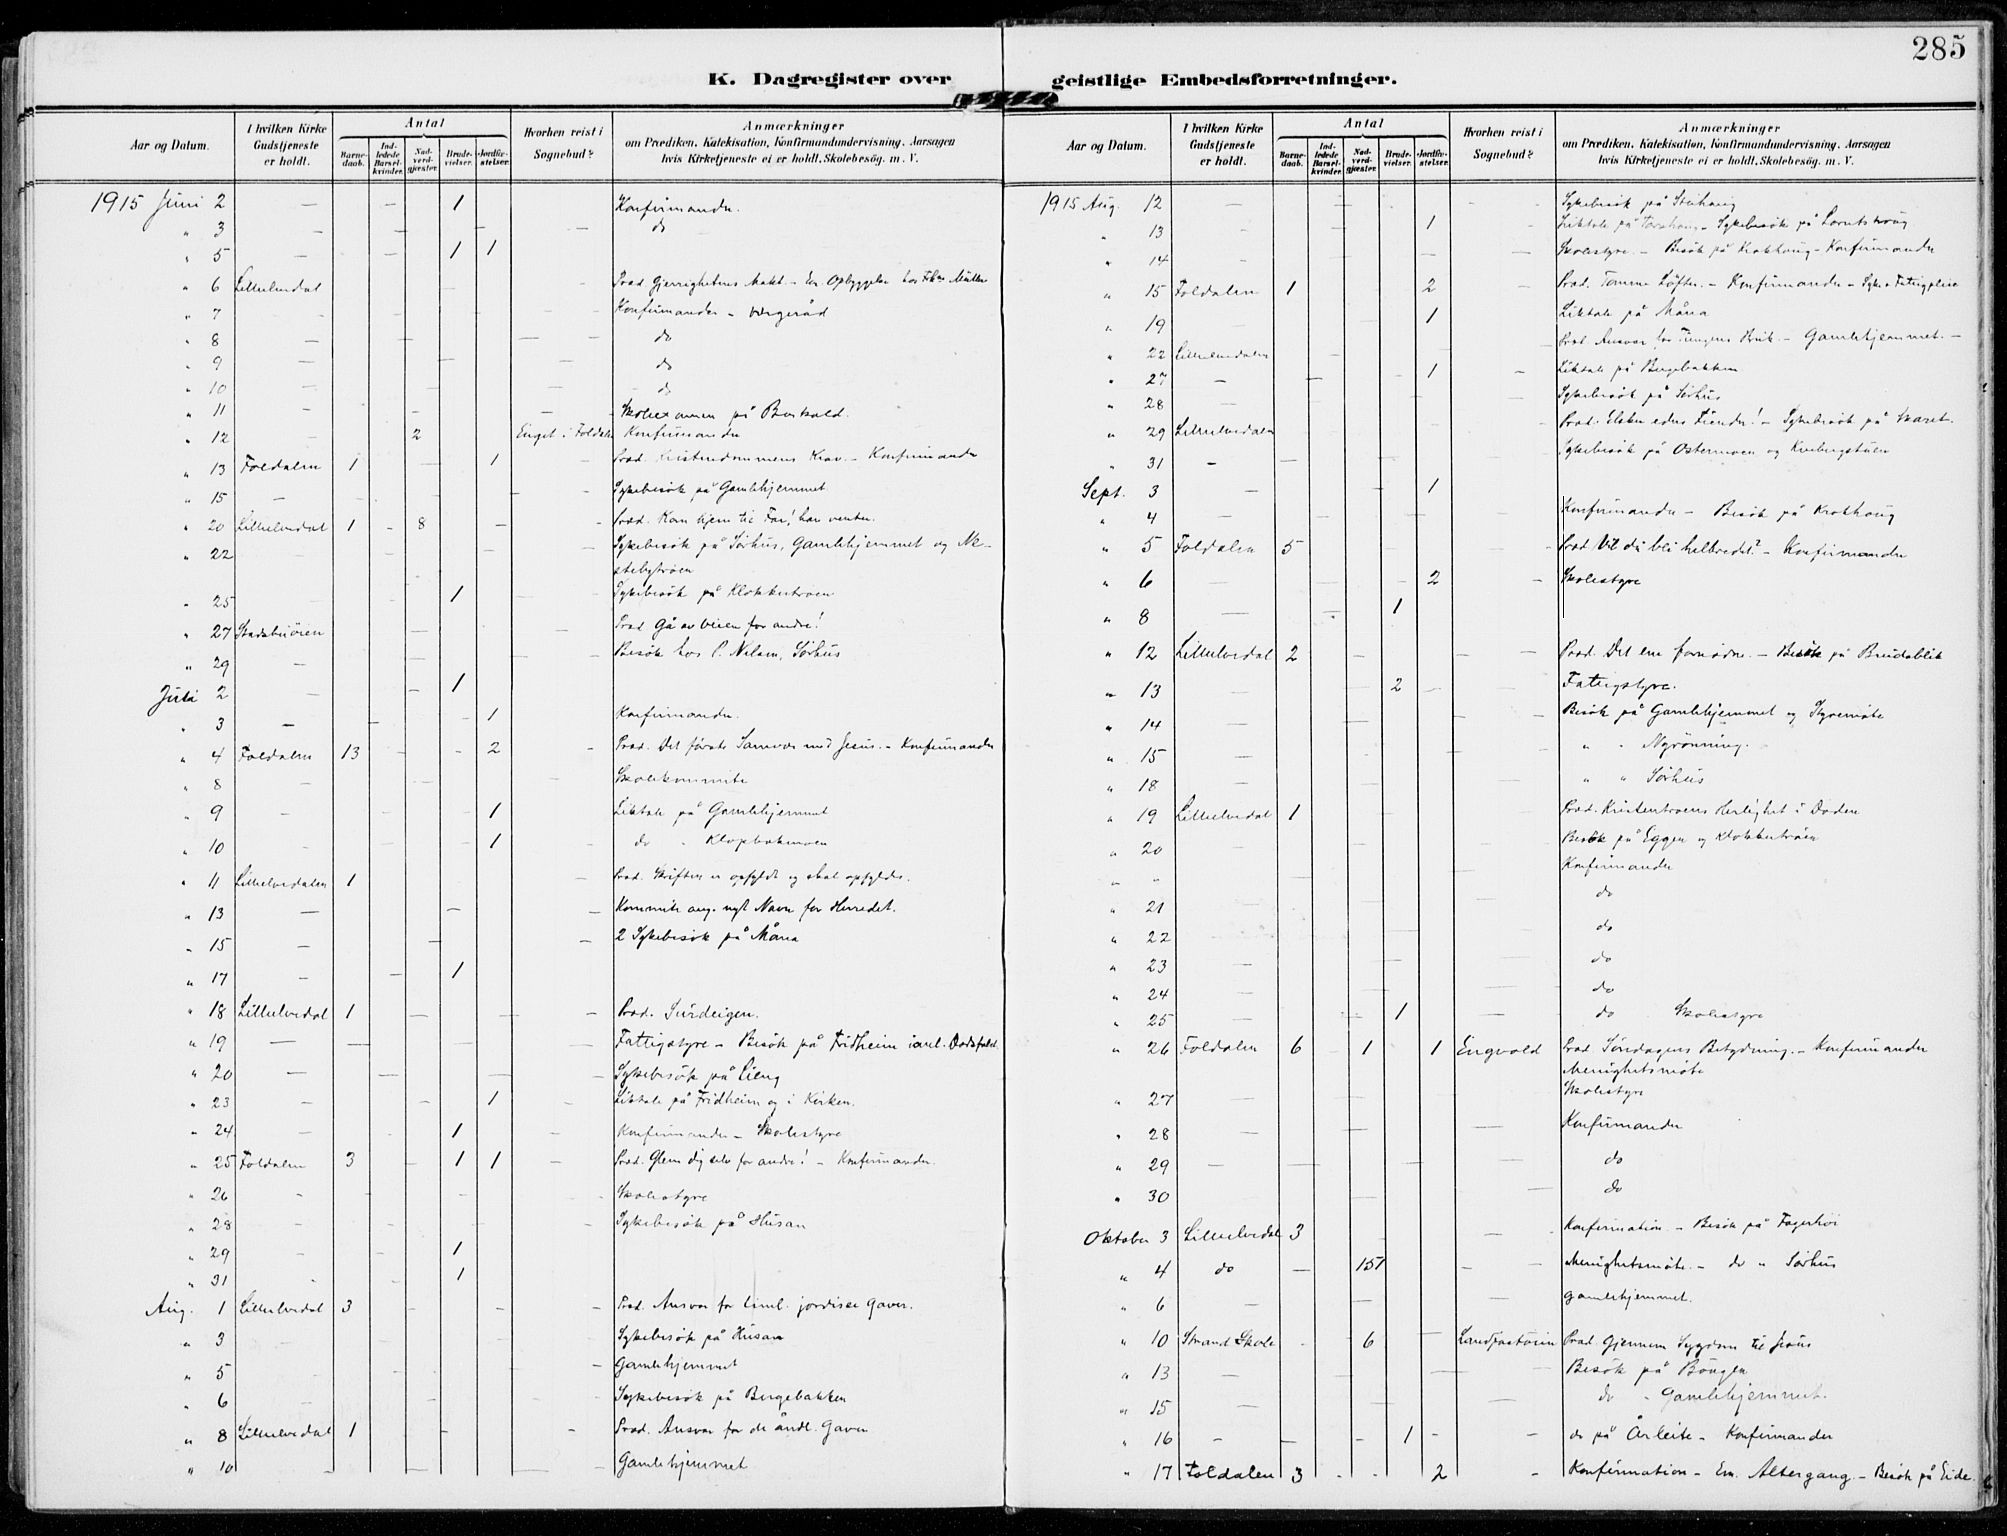 285
K. Dagregister over geistlige Embedsforretninger.
Aar og Datum. I hvilken Kirke Gudstjeneste er holdt. Antal Barne-daab. Ind-ledede Barsel-kvinder. Nad-verd-gjæster. Brude-vielser. Jordfæ-stelser. Hvorhen reist i Sognebud? Anmærkninger om Prædiken, Katekisation, Konfirmandundervisning, Aarsagen hvis Kirketjeneste ei er holdt, Skolebesøg, m. V.
1915 Juni 2 — — 1 Konfirmander.
" 3 — — — do
" 5 — — 1 1
" 6 Lilleelvedal — Præd. Gjerrighetens Makt. — Em. Opbyggelse hos
" 7 — — Konfirmander — Vergeråd
" 8 — — do
" 9 — — do
" 10 — — — do
" 11 — — Skoleexamen på
" 12 — 2 Enget i Foldalen Konfirmander
" 13 Foldalen 1 — 1 Præd. Kristendommens Krav. — Konfirmander
" 15 — — — Sykebesøk på Gamlehjemmet
" 20 Lilleelvedal 1 - 8 — - Præd. Kom hjem til Far! han venter.
" 22 — — Sykebesøk på Sørhus, Gamlehjemmet og Ne-
stebytrøen
" 25 — 1 Sykebesøk på Klokkertrøen
" 27 Stadsbuøien — Præd. Gå av veien for andre!
" 29 — — Besøk hos P. Nilsen, Sørhus
Juli 2 — - 1
" 3 — — - 1 Konfirmander.
" 4 Foldalen 13 - - 2 - Præd. Det første Samvær med Jesus. — Konfirmander
" 8 — Skolekommite
" 9 - — - 1 Liktale på Gamlehjemmet
" 10 — — 1 do "
" 11 Lilleelvedalen 1 Præd. Skriften er opfyldt og skal opfyldes.
" 13 — — — Kommite ang. nyt Navn for Herredet.
" 15 — — — 2 Sykebesøk på Måna
" 17 — — 1
" 18 Lilleelvedal 1 — — - Præd. Surdeigen.
" 19 — — — — Fattigstyre — Besøk på Fridheim i anl. Dødsfald.
" 20 — — — Sykebesøk på Lieng
" 23 — - 1 - Liktale på Fridheim og i Kirken.
" 24 — — 1 — Konfirmander — Skolestyre
" 25 Foldalen 3 - 1 1 - Præd. Glem dig selv for andre! — Konfirmander.
" 26 - - - Skolestyre
" 28 - - Sykebesøk på Husan
" 29 - - 1
" 31 - 1
Aug. 1 Lilleelvedal 3 — - - Præd. Ansvar for timl. jordiske Gaver.
" 3 — — Sykebesøk på Husan
" 5 — — Gamlehjemmet
" 6 — — Sykebesøk på Bergebakken
" 8 Lilleelvedal 1 - - Præd. Ansvar for de åndl. Gaver
" 10 - — Gamlehjemmet
Aar og Datum. I hvilken Kirke Gudstjeneste er holdt. Antal Barne-daab. Ind-ledede Barsel-kvinder. Nad-verd-gjæster. Brude-vielser. Jordfæ-stelser. Hvorhen reist i Sognebud? Anmærkninger om Prædiken, Katekisation, Konfirmandundervisning, Aarsagen hvis Kirketjeneste ei er holdt, Skolebesøg, m. V.
1915 Aug. 12 — — - Sykebesøk på
" 13 — 1 - Liktale på — Sykebesøk på
" 14 — — Skolestyre. — Besøk på Krokhaug — Konfirmander
" 15 Foldalen 1 2 - Præd. Tomme Løfter. — Konfirmander —
" 19 — 1 Liktale på Måna
" 22 Lilleelvedalen — Præd. Ansvar for Tungens Bruk. — Gamlehjemmet. —
" 27 — — 1 - Liktale på Bergebakken
" 28 — — Sykebesøk på Sørhus
" 29 Lilleelvedalen Præd. Elsker eders Fiender! — Sykebesøk på
" 31 — — Sykebesøk på Ostermoen og Kvebergstuen
Sept. 3 — - 1
" 4 — — Konfirmander — Besøk på Krokhaug
" 5 Foldalen 5 Præd. Vil du bli helbredet? — Konfirmander
" 6 — 2 - Skolestyre
" 8 — — 1
" 12 Lilleelvedal 2 — - Præd. Det ene fornødne. — Besøk på Breidablik
" 13 — 2 - Fattigstyre.
" 14 — — Besøk på Gamlehjemmet og
" 15 — — " " Nyrønning.
" 18 — — " " Sørhus
" 19 Lilleelvedal 1 Præd. Kristentroens Herlighet i Døden
" 20 — — Besøk på Eggen og Klokkertrøen
" " Konfirmander
" 21 — do
" 22 — do
" 23 — do
" 24 — do
" 25 — 1 do Skolestyre
" 26 Foldalen 6 - 1 1 Engvold Præd. Søndagens Betydning. — Konfirmander
Menighetsmøte
" 27 — Skolestyre
" 28 — Konfirmander
" 29 — do
" 30 do
Oktober 3 Lilleelvedal 3 — Konfirmation. — Besøk på Fagerhøi
" 4 do — 151 - Menighetsmøte. — do " Sørhus
" 6 — — Gamlehjemmet.
" 10 Strand Skole - 6 — Præd. Gjennem Sygdom til Jesus
" 13 — — Besøk på
" 15 — — do " Gamlehjemmet.
" 16 - — - 1 - - do på Årleite — Konfirmander
" 17 Foldalen 3 - - 2 - Konfirmation — Em. Altergang — Besøk på Eide.